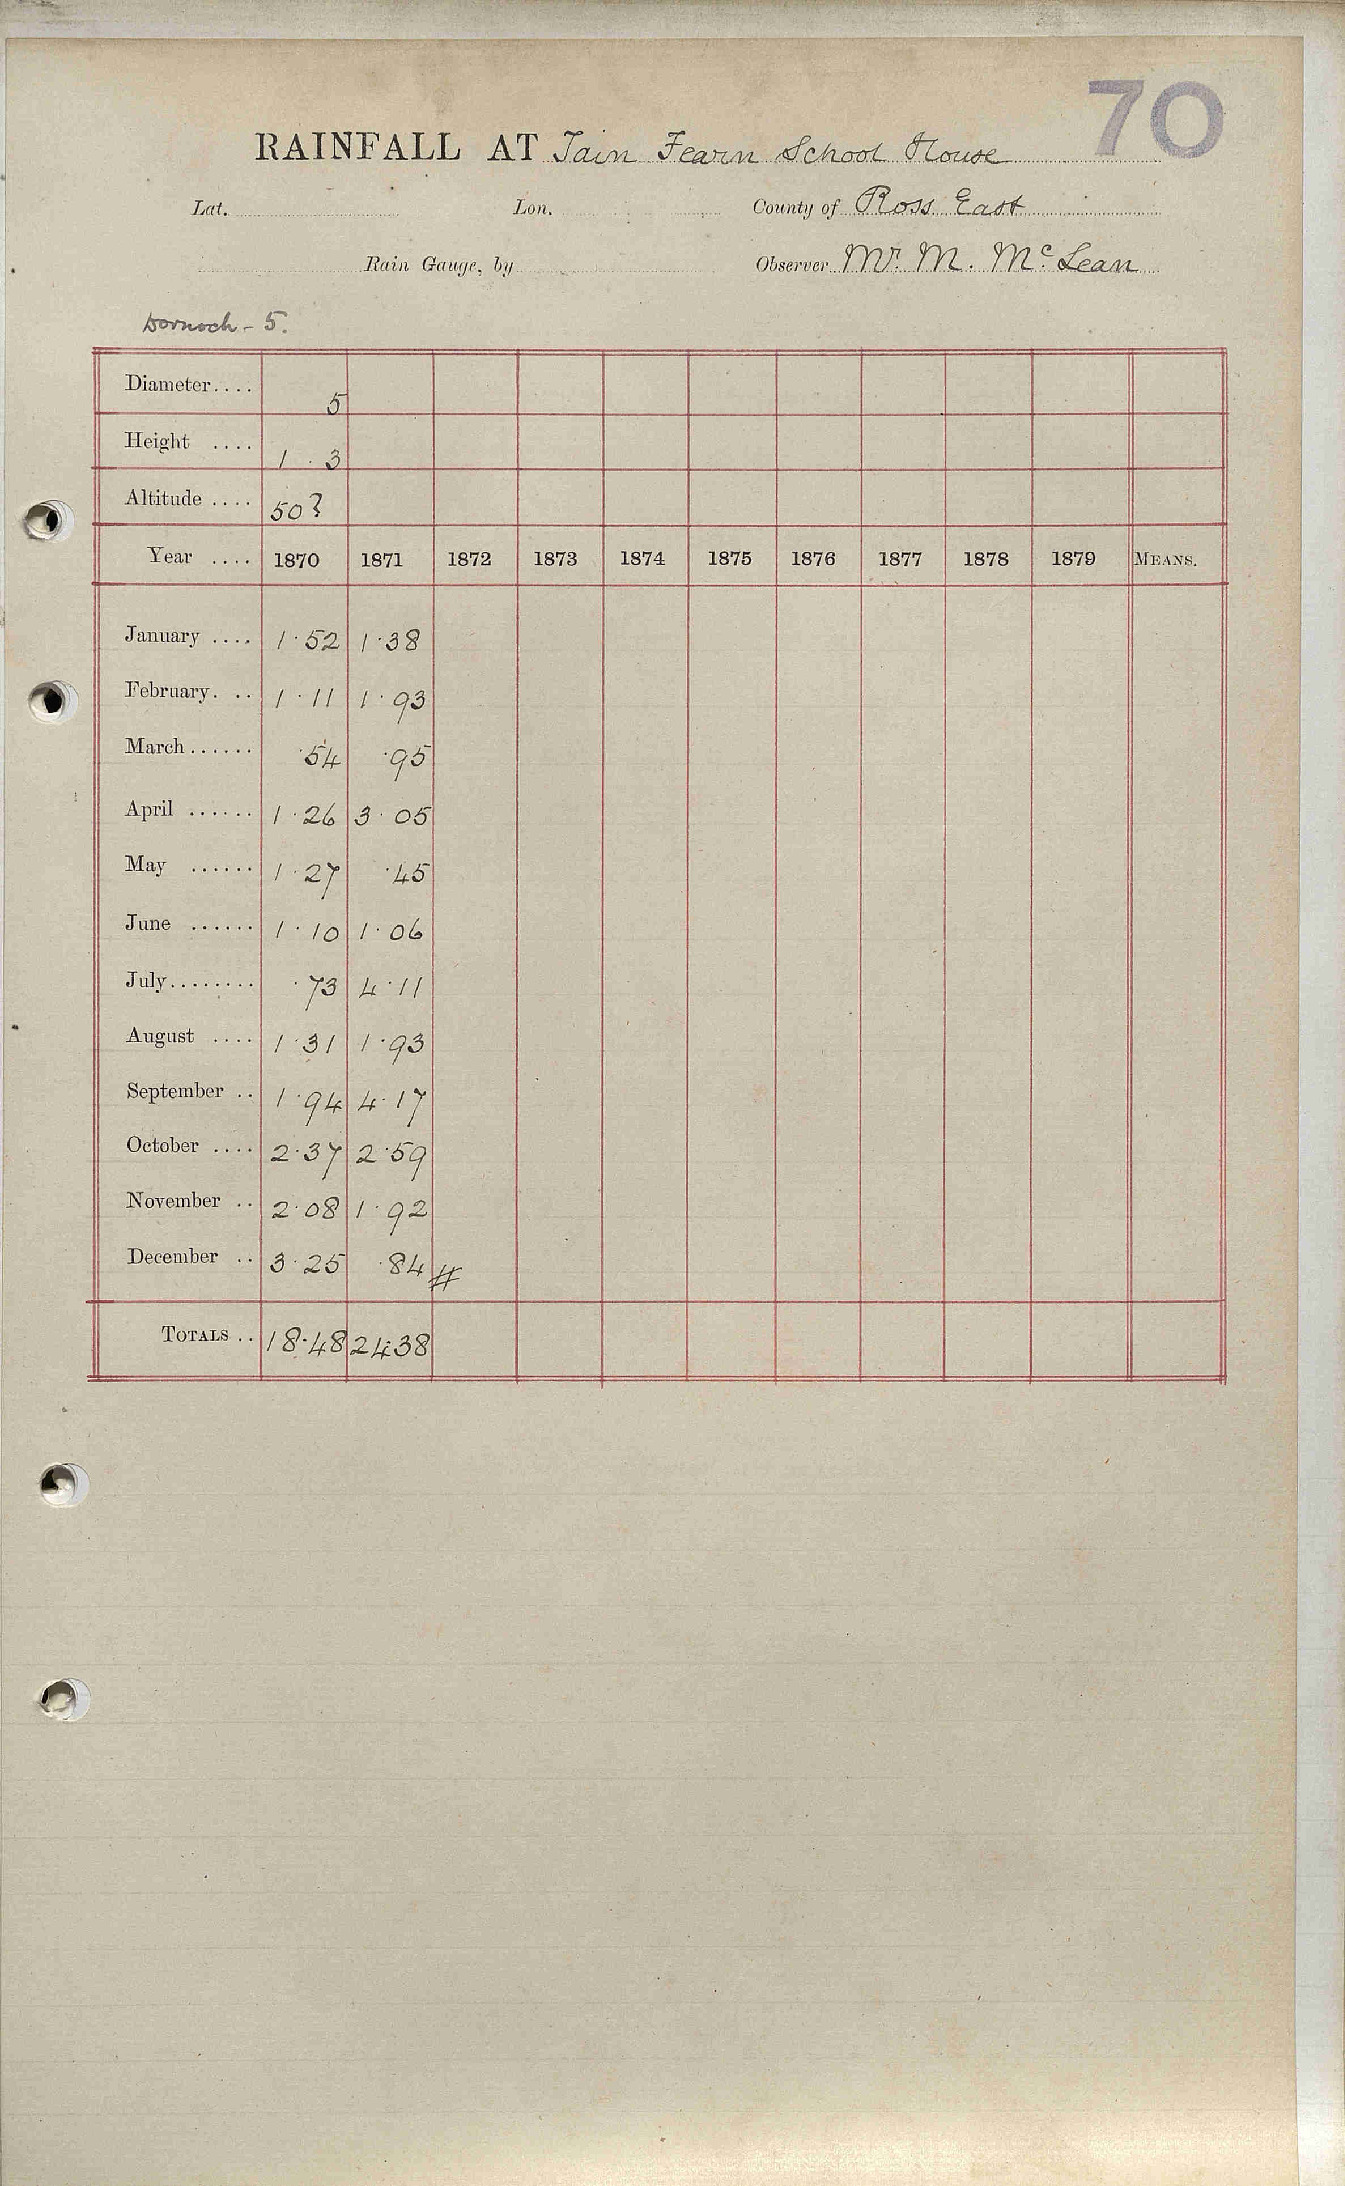 70
RAINFALL AT Tain Fearn School House
Lat. Lon. County of Ross East
Rain Gauge, by Observer Mr. M. McLean
Dornoch - 5.
Diameter.... 5
Height .... 1 . 3
Altitude .... 50?
Year .... 1870 1871 1872 1873 1874 1875 1876 1877 1878 1879 MEANS.
January .... 1.52 1.38
February. .. 1.11 1.93
March...... .54 .95
April ...... 1.26 3.05
May ...... 1.27 .45
June ...... 1.10 1.06
July........ .73 4.11
August .... 1.31 1.93
September .. 1.94 4.17
October .... 2.37 2.59
November .. 2.08 1.92
December .. 3.25 .84 #
TOTALS .. 18.48 24.38